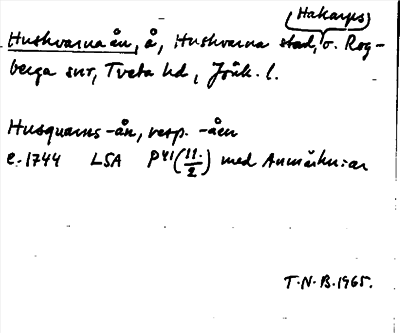 (Hakarps)
Huskvarnaån, å, Huskvarna stad, o. Rog-
berga snr, Tveta hd, Jönk. l.
Husquarns-ån, resp. -åen
c. 1744 LSA P41 (11:/2) med Anmärkn:ar
T.N.B. 1965.